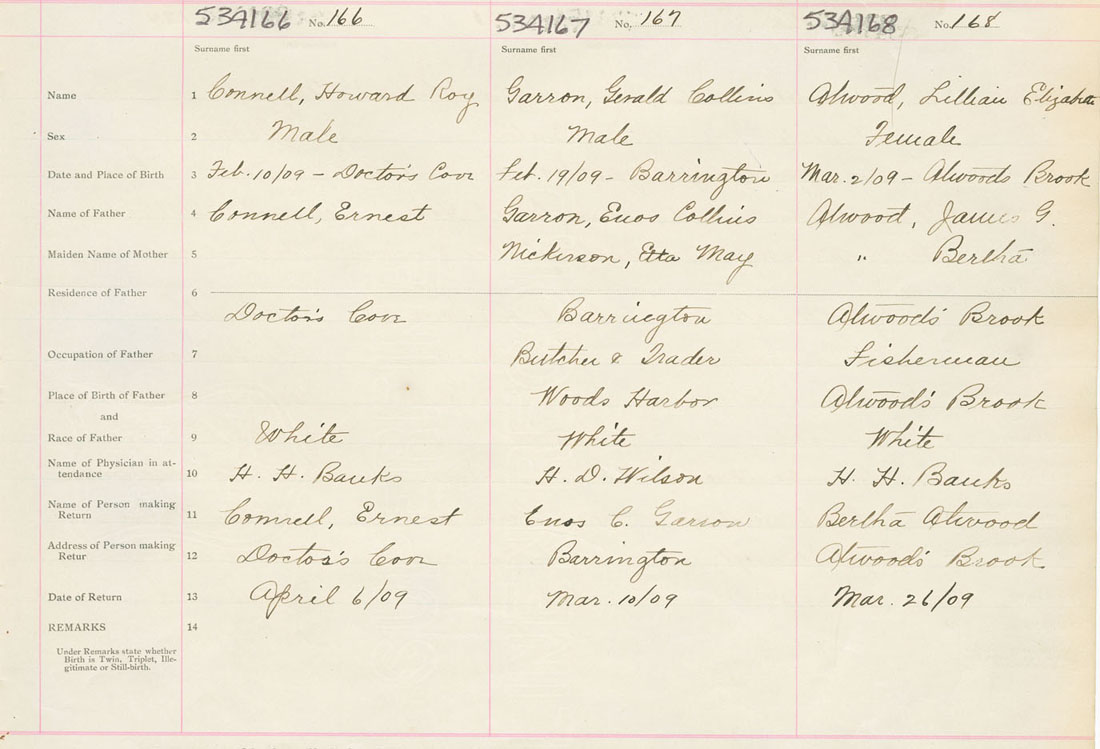 53A166 No. 166 53A167 No. 167 53A168 No. 168
Surname first Surname first Surname first
Name 1 Connell, Howard Roy Garron, Gerald Collins Atwood, Lillian Elizabeth
Sex 2 Male Male Female
Date and Place of Birth 3 Feb. 10/09 - Doctor's Cove Feb. 19/09 - Barrington Mar. 2/09 - Atwoods Brook
Name of Father 4 Connell, Ernest Garron, Enos Collins Atwood, James G.
Maiden Name of Mother 5 Nickerson, Etta May " Bertha
Residence of Father 6
Doctor's Cove Barrington Atwood's Brook
Occupation of Father 7 Butcher & Trader Fisherman
Place of Birth of Father 8 Woods Harbor Atwood's Brook
and
Race of Father 9 White White White
Name of Physician in at-
tendance 10 H. H. Banks H. D. Wilson H. H. Banks
Name of Person making
Return 11 Connell, Ernest Enos C. Garron Bertha Atwood
Address of Person making
Retur 12 Doctor's Cove Barrington Atwood's Brook
Date of Return 13 April 6/09 Mar. 10/09 Mar. 26/09
REMARKS 14
Under Remarks state whether
Birth is Twin, Triplet, Ille-
gitimate or Still-birth.